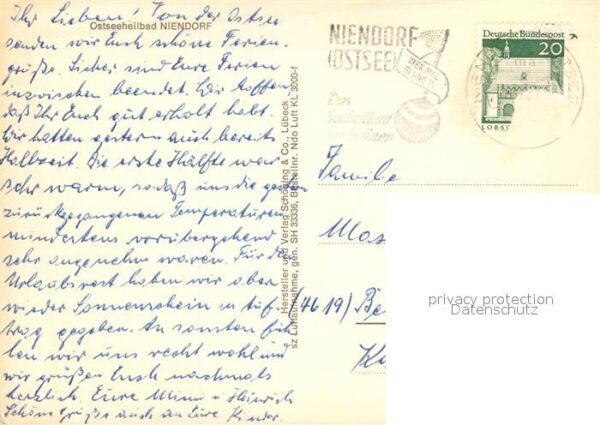 Ihr Lieben! Von der Ostsee
Ostseeheilbad NIENDORF
senden wir Euch schöne Ferien-
grüße. Sicher sind Eure Ferien
inzwischen beendet. Wir hoffen
daß Ihr Euch gut erholt habt.
Wir hatten gestern auch bereits
Halbzeit. Die erste Hälfte war
sehr warm, sodaß uns die
zurückgegangenen Temperaturen
mindestens vorübergehend
sehr angenehm waren. Für den
Urlaubsrest haben wir aber
wieder Sonnenschein in Auf-
trag gegeben. Ansonsten füh-
len wir uns recht wohl und
wir grüßen Euch nochmals
herzlich. Eure Mimi u. Heinrich
Schöne Grüße auch an Eure Kinder.
Hersteller und Verlag Schöning & Co., Lübeck
sz Luftaufnahme, gen. SH 33336, Bestellnr. Ndo Luft KL 3000-f
NIENDORF
(OSTSEE)
Das
Seeheilbad
im Grünen
Deutsche Bundespost
20
LORSCH
Familie
Mos
(4619) Be
Ka
privacy protection
Datenschutz